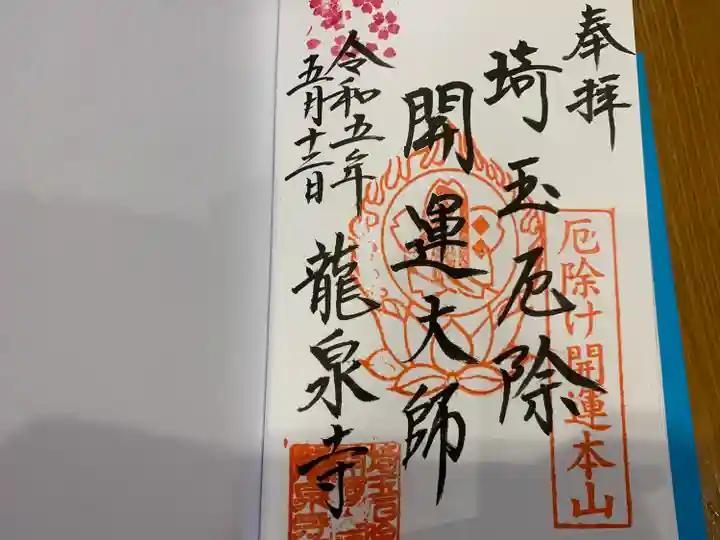 奉拝
埼玉厄除
開運大師
令和五年
五月十二日
龍泉寺
厄除け開運本山